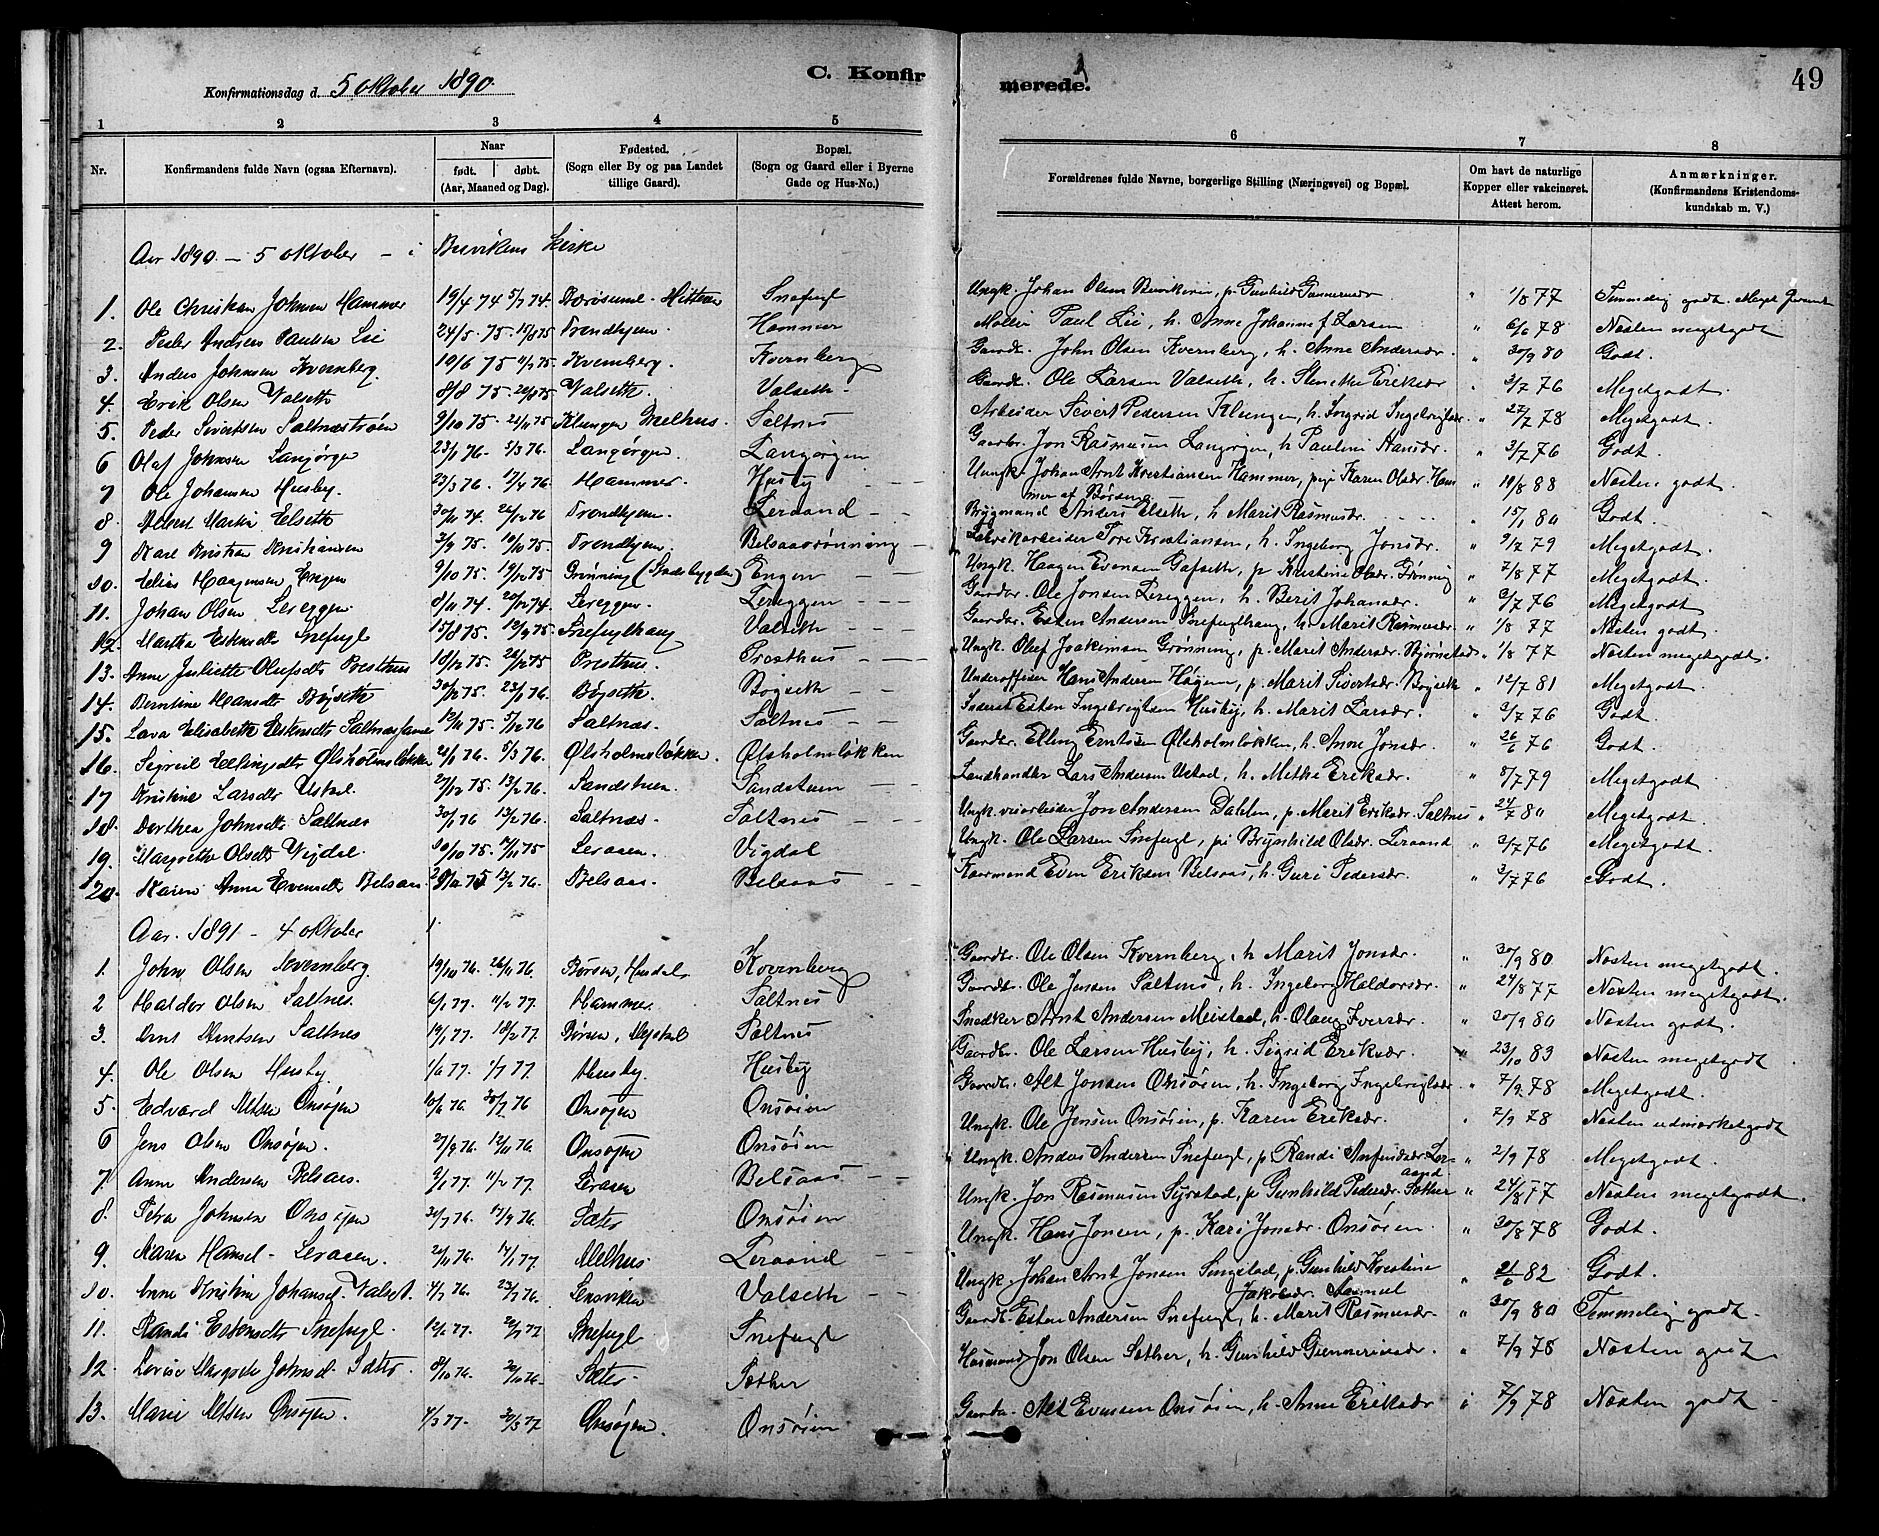 C. Konfirmerede.
49
Konfirmationsdag d. 5 oktober 1890.
1 2 3 4 5 6 7 8
Nr.
Konfirmandens fulde Navn (ogsaa Efternavn).
Naar
født. døbt.
(Aar, Maaned og Dag).
Fødested.
(Sogn eller By og paa Landet
tillige Gaard).
Bopæl.
(Sogn og Gaard eller i Byerne
Gade og Hus-No.)
Forældrenes fulde Navne, borgerlige Stilling (Næringsvei) og Bopæl.
Om havt de naturlige
Kopper eller vakcineret.
Attest herom.
Anmærkninger.
(Konfirmandens Kristendoms-
kundskab m. V.)
Aar 1890 - 5 oktober - i Busvikens Kirke
1. Ole Christian Johnsen Hammer 19/4 74 5/7 74. Hitteren Snefugl Ungk. Johan Olsen p. Gunhild Gunnersdr " 1/8 77 Temmelig godt. Meget
2. Peder Andreas Paulsen Lie 24/5. 75. 15/8 75 Trondhjem. Hammer Møller Paul Lie, h. Anne Johanne f. Larsen " 6/6 78 Næsten megetgodt
3. Anders Johnsen Kvernberg. 19/6 75 11/9 75. Kvernberg. Kvernberg Gaardb. John Olsen Kvernberg, h. Anne Andersdr. " 30/9 80 Godt.
4. Erik Olsen Valseth 8/8 75. Valseth. Valseth Gaardb. Ole Larsen Valseth, h. Eriksdr " 3/7 76 Megetgodt.
5. Peder Sivertsen Saltnæstrøen 9/10 75. 21/11 75. Klungen Melhus. Saltnes Arbeider Sivert Pedersen Klungen, h. Ingrid Ingebrigtsdr " 27/7 78 Megetgodt.
6 Olaf Johnsen Langørgen 23/1 76. 5/3 76. Langørgen. Langørgen Gaardbr. Jon Rasmussen Langørgen, h Pauline Hansdr. " 3/7 76 Godt.
7 Ole Johansen Husby. 23/3 76. 17/4 76 Hammer. Husby Ungk. Johan Arnt Kristiansen Hammer, pige Karen Olsdr. Ham " 19/8 88 Næsten godt.
mer af Børsen.
8. Albert Martin Elseth 30/11 74. 26/12 76 Trondhjem. Leraand Brygmand Anders Elseth, h Marit Rasmusdr. " 15/1 80 Godt.
9 Karl Kristian Kristiansen 3/9 75. 10/10 75. Trondhjem. Belsaasrønning Fabrikarbeider Tore Kristiansen, h. Ingeborg Jonsdr. " 9/7 79 Megetgodt.
10. Elias Haagensen Engen 9/10 75. 19/12 75 Grønning (Stadsbygden) Engen Ungk. Haagen Evensen Gafseth, p Kristine Olsdr. Grønning " 7/8 77 Megetgodt.
11. Johan Olsen Lereggen. 8/11 74. 20/12 74. Lereggen. Lereggen Gaardbr. Ole Jonsen Lereggen, h. Berit Johansdr. " 3/7 76 Megetgodt.
12. Martha Estensdt Snefugl 15/8 75. 12/9 75. Snefuglhaug Valseth Gaardbr. Esten Andersen Snefuglhaug, h. Marit Rasmusdr. " 1/8 77 Næsten godt.
13. Anne Juliette Olufsdt Presthus 18/12 75. 26/12 75 Presthus. Prosthus Ungk. Olef Joakimsen Grønning, p. Marit Andersdr. Bjørnstad " 1/8 77 Næsten megetgodt.
14. Berntine Hansdt Bøyseth 30/12 75. 23/1 76. Bøyseth. Bøgseth Underofficer Hans Andersen Høgen, p. Marit Sivertsdr. Bøgseth " 12/7 81 Megetgodt.
15. Lava Elisabeth Estensdt Saltnæs 12/11 75. 5/12 76 Saltnæs. Saltnes Esten Ingebrigtsen Husby, h. Marit Larsdr. " 3/7 76 Godt.
16. Sigrid Ellingsdt Ølsholmsløkken 21/1 76. 5/3 76. Ølsholmsløkken. Ølsholmsløkken Gaardbr. Elling Erntsen Ølsholmsløkken, h. Anne Jonsdr. " 26/6 76 Godt.
17 Kristine Larsdt Ustad. 27/12 75. 13/2 76. Sandstuen. Sandstuen Landhandler Lars Andersen Ustad, h. Methe Eriksdr. " 8/7 79 Megetgodt
18. Dorthea Johnsdt Saltnæs 30/1 76 13/2 76. Saltnæs. Saltnes Ungk. veiarbeider Jon Andersen Dahlen, p. Marit Eriksdr. Saltnes " 24/7 80 Megetgodt.
19. Margrethe Olsdt Vigdal. 10/10 75. 14/11 75 Leraaen. Vigdal Ungk. Ole Larsen Snefugl, pi Brynhild Olsdr. Leraand " 3/7 76 Megetgodt.
20. Karen Anna Evensdt Belsaas. 13/2 76. Belsaas. Belsaas Kaarmand Even Eriksen Belsaas, h. Guri Pedersdr. " 3/7 76 Godt.
Aar. 1891 - 4 oktober
1. John Olsen Kvernberg 19/10 76. 26/11 76. Børsen, Kvernberg Gaardbr. Ole Olsen Kvernberg, h Marit Jonsdr. " 30/9 80 Næsten megetgodt.
2 Haldor Olsen Saltnes. 6/1 77. 11/2 77. Hammer. Saltnes Gaardbr. Ole Jensen Saltnes, h. Ingeborg Haldorsdr. " 24/8 77 Næsten megetgodt.
3. Arnt Arntsen Saltnes 19/1 77. 18/2 77. Børsen, Saltnes Snedker Arnt Andersen Meistad, h. Olaug Iversdr. " 30/9 80 Næsten godt.
4. Ole Olsen Husby. 1/6 77. 1/7 77. Husby. Husby Gaardbr. Ole Larsen Husby, h. Sigrid Eriksdr. " 23/10 83 Næsten megetgodt.
5. Edvard Altsen Onsøyen 10/6 76. 30/7 76 Onsøyen Onsøien Gaardbr. Alt Jonsen Onsøien, h. Ingeborg Ingebrigtsdr " 7/9. 78 Megetgodt.
6 Jens Olsen Onsøyen. 27/9 76. 12/11 76. Onsøyen Onsøien Ungk. Ole Jensen Onsøien, p. Karen Eriksdr. " 7/9 78 Næsten udmærketgodt
7. Anne Andersen Belsaas. 9/1 77. 11/2 77 Leraaen Belsaas Ungk. Anders Andersen Snefugl, p. Randi Anfinsdr. Ler- " 2/9 78 Megetgodt.
aand
8. Petra Johnsen Onsøyen 30/7 76. 17/9 76. Sæter Onsøien Ungk. Jon Rasmusen p Gunhild Pedersdr. Sæther " 24/8 77 Næsten megetgodt.
9. Karen Hansd. Leraaen. 20/11 76. 14/1 77. Melhus. Leraand Ungk. Hans Jonsen, p. Kari Jonsdr. Onsøien. " 30/8 78 Godt.
10. Anne Kristine Johansd. Valset. 4/7 76. 23/7 76. Lensviken Valseth Ungk. Johan Arnt Jonsen Singstad, p. Gunhild Kristine " 21/6 82 Godt.
Jakobsdr. Aasmul
11. Randi Estensdt Snefugl. 12/6 77. 22/7 77 Snefugl Snefugl Gaardb. Esten Andersen Snefugl, h. Marit Rasmusdr. " 30/9 80 Temmelig godt.
12. Lovise Margrete Johnsd. Sæter. 8/10 76. 30/10 76. Sæter. Sæther Husmand Jon Olsen Sæther, h. Gunhild Gunneriusdr. " 7/9 78 Næsten godt
13. Marie Altsen Onsøyen. 4/3 77. 30/3 77 Onsøyen. Onsøien Gaardbr. Alt Evensen Onsøien, h. Anne Eriksdr " 7/9 78 Næsten godt